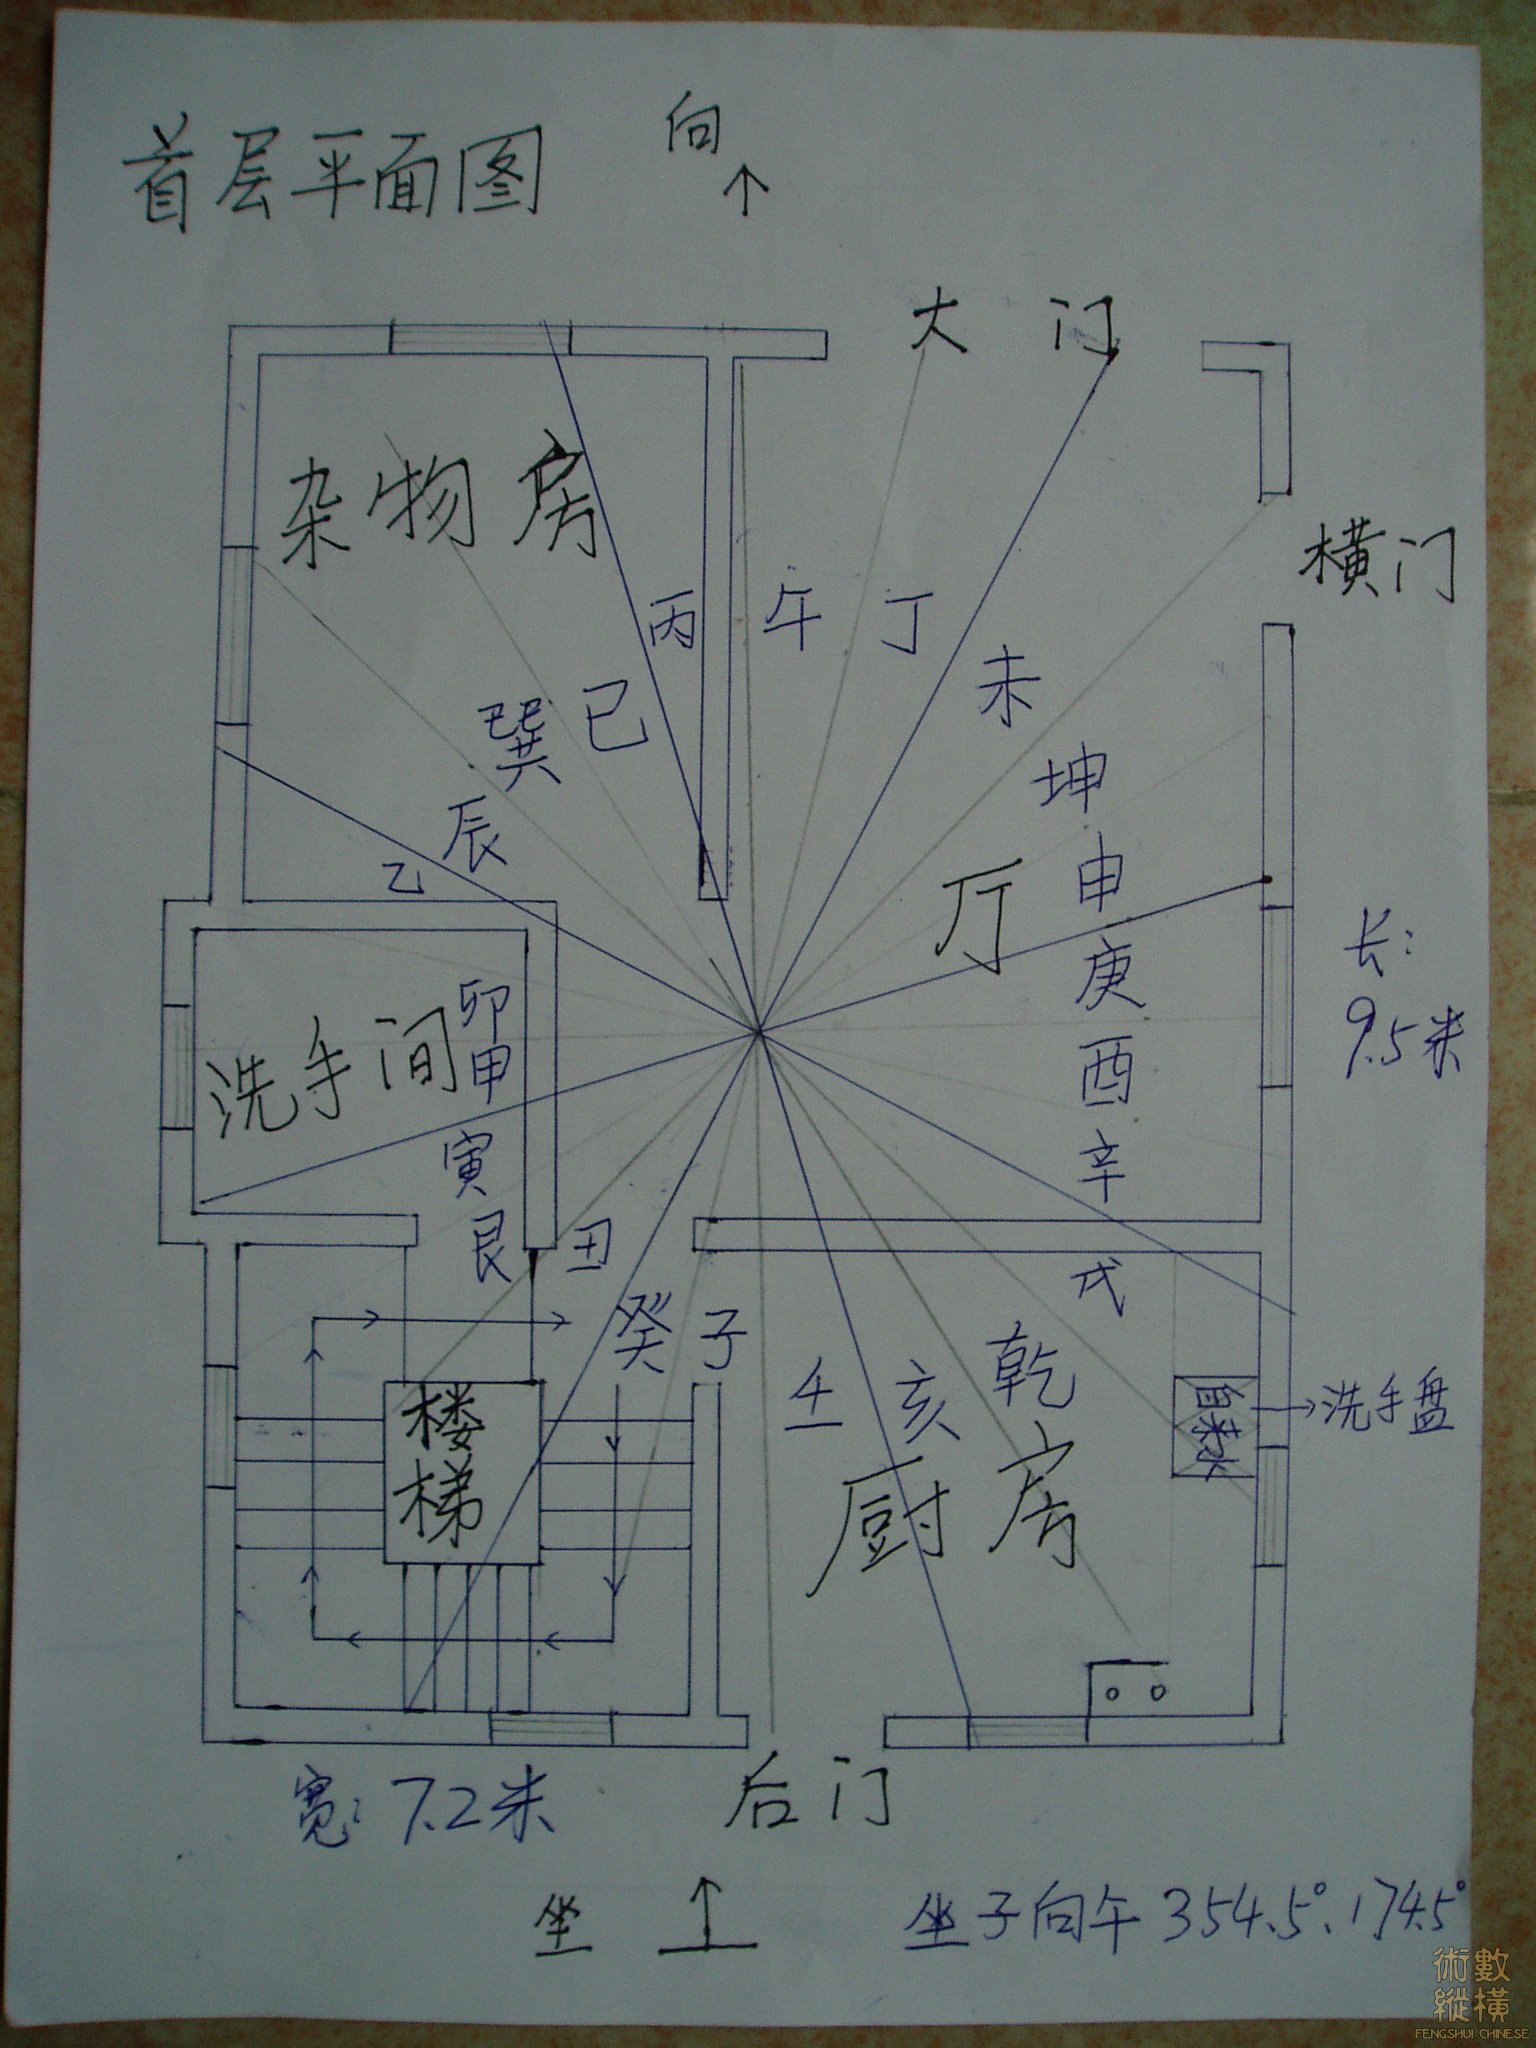 首层平面图
向
大门
杂物房
横门
丙 午 丁
未
巽 巳
坤
辰
乙
申
厅
庚
长:
9.5米
卯
甲
洗手间
酉
寅
辛
艮 丑
戌
癸 子
乾
壬 亥
楼梯
自来水
洗手盘
厨房
后门
宽: 7.2米
坐
坐子向午 354.5°、174.5°
術數
縱橫
FENGSHUI-CHINESE